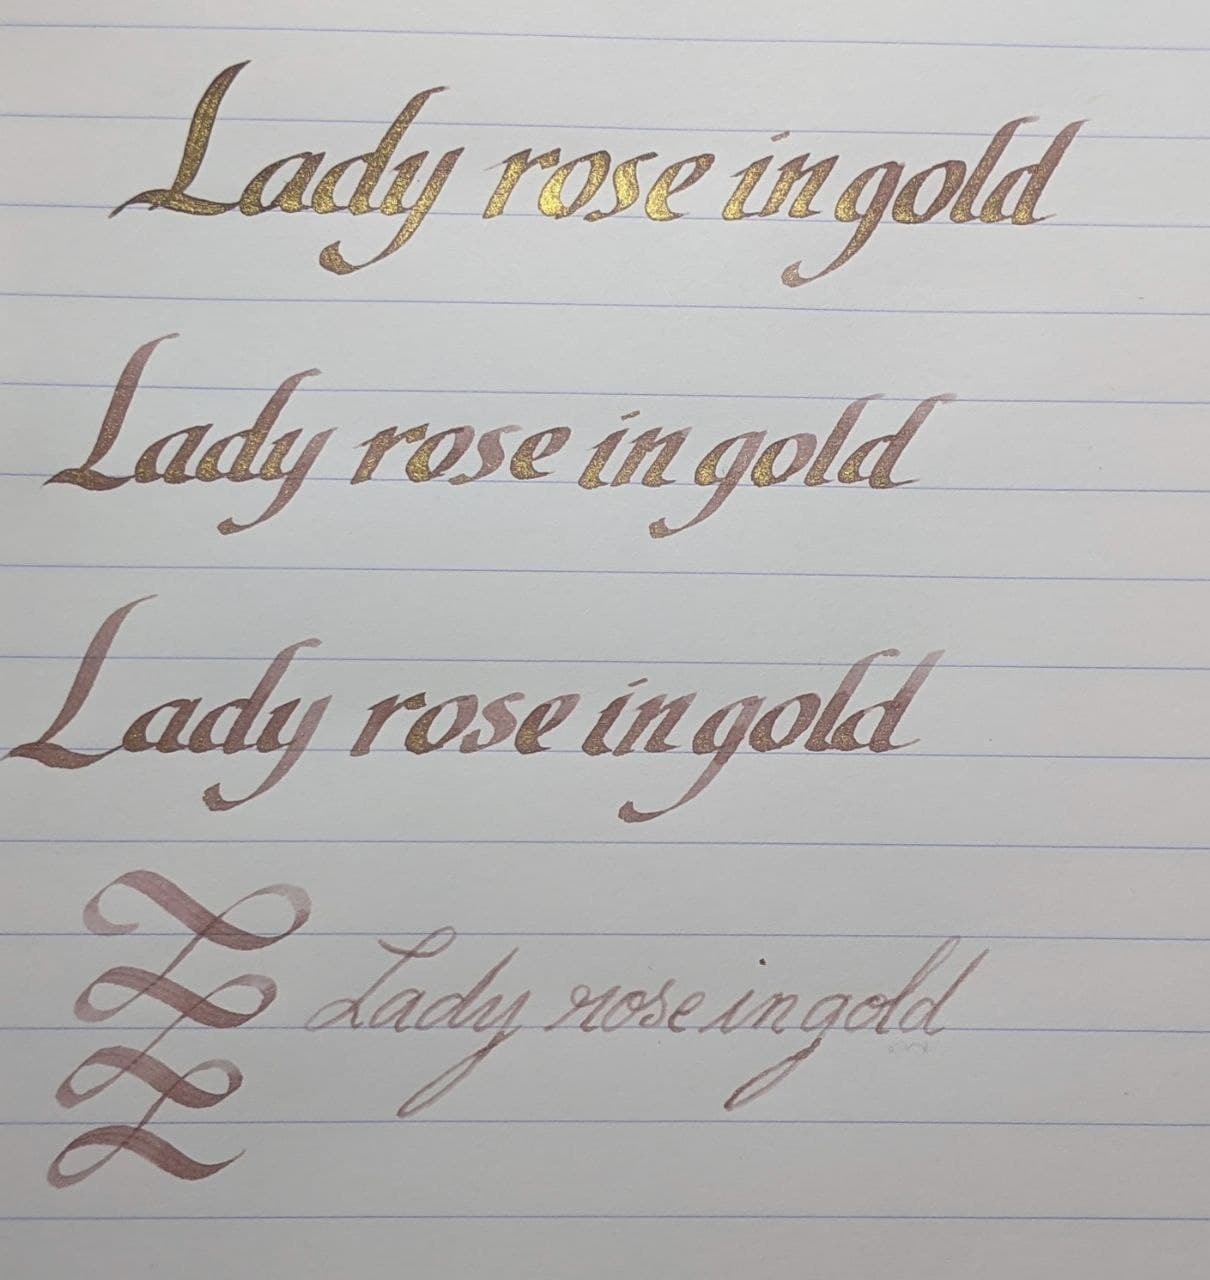 Lady rose in gold
Lady rose in gold
Lady rose in gold
Lady rose in gold